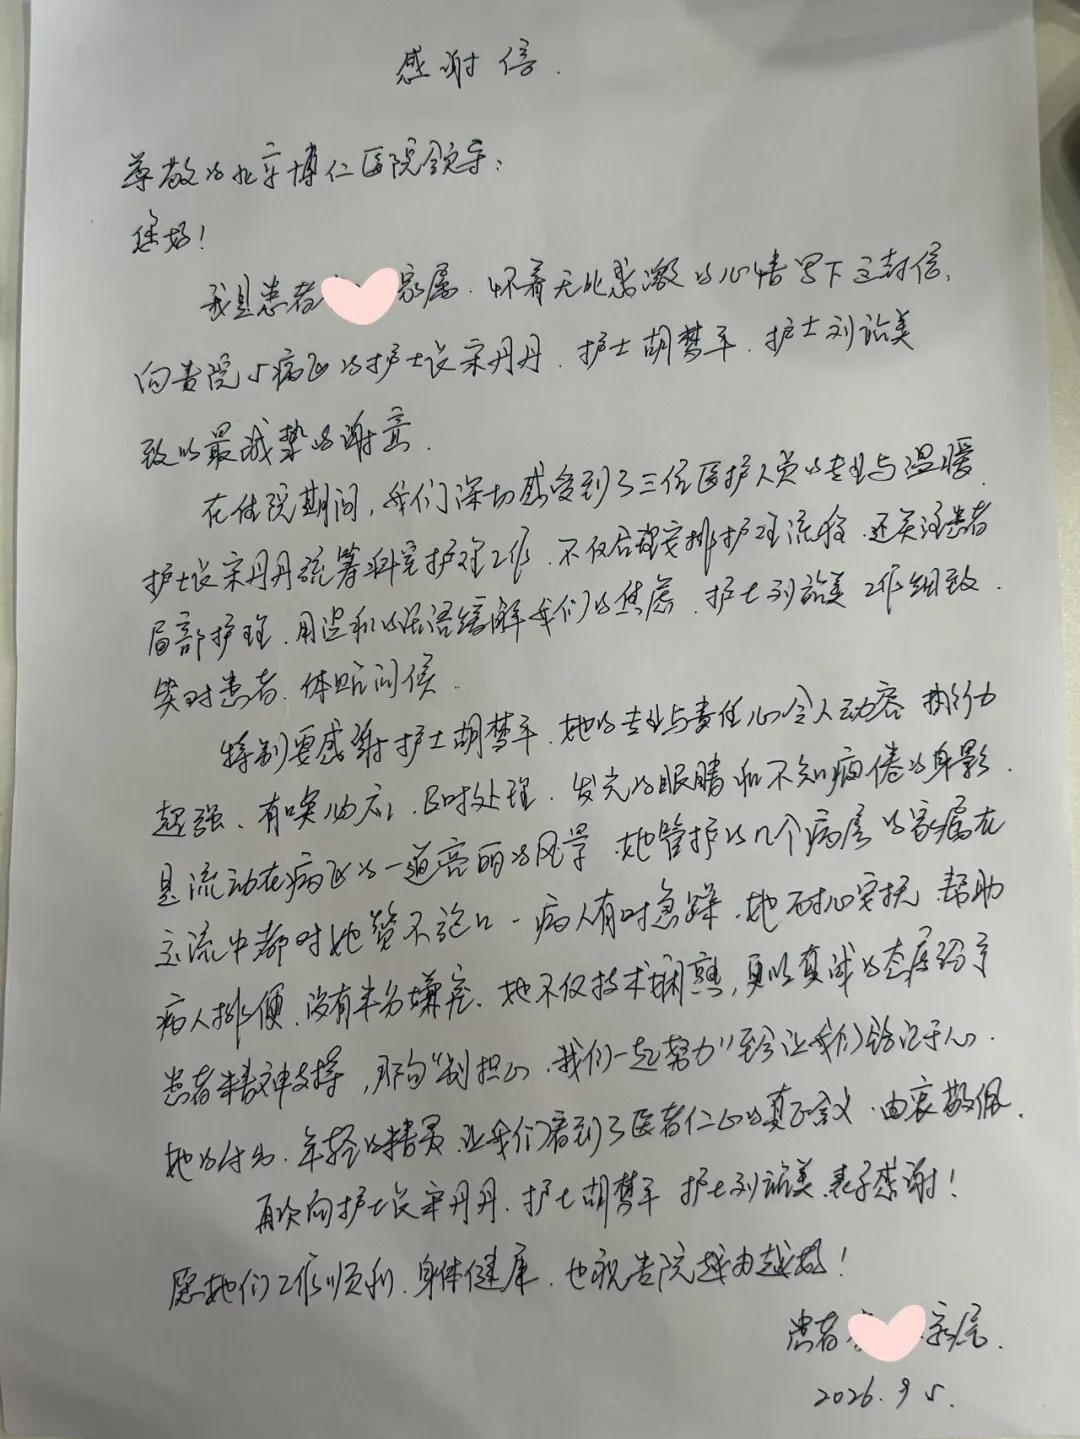 感谢信.
尊敬的北京博仁医院领导:
您好!
我是患者 家属.怀着无比感激的心情写下这封信,
向贵院5病区的护士长宋丹丹.护士胡梦平.护士刘
致以最诚挚的谢意.
在住院期间,我们深切感受到了三位医护人员的专业与温暖.
护士长宋丹丹统筹科室护理工作.不仅合理安排护理流程.还关注患者
局部护理.用温和的话语缓解我们的焦虑.护士刘 工作细致.
笑对患者.体贴问候.
特别要感谢护士胡梦平.她的专业与责任心令人动容 执行力
超强、有唤必应、及时处理.发光的眼睛和不知疲倦的身影.
是流动在病区的一道亮丽的风景.她管护的几个病房的家属在
交流中都对她赞不绝口.病人有时急躁.她耐心安抚.帮助
病人排便.没有半分嫌弃.她不仅技术娴熟,更以真诚的态度给予
患者精神支持,那句"别担心.我们一起努力"至今让我们铭记于心.
她的付出.年轻的 .让我们看到了医者仁心的真正含义.由衷敬佩.
再次向护士长宋丹丹.护士胡梦平 护士刘 表示感谢!
愿她们工作顺利.身体健康.也祝贵院越办越好!
患者 家属.
2026.9 5.